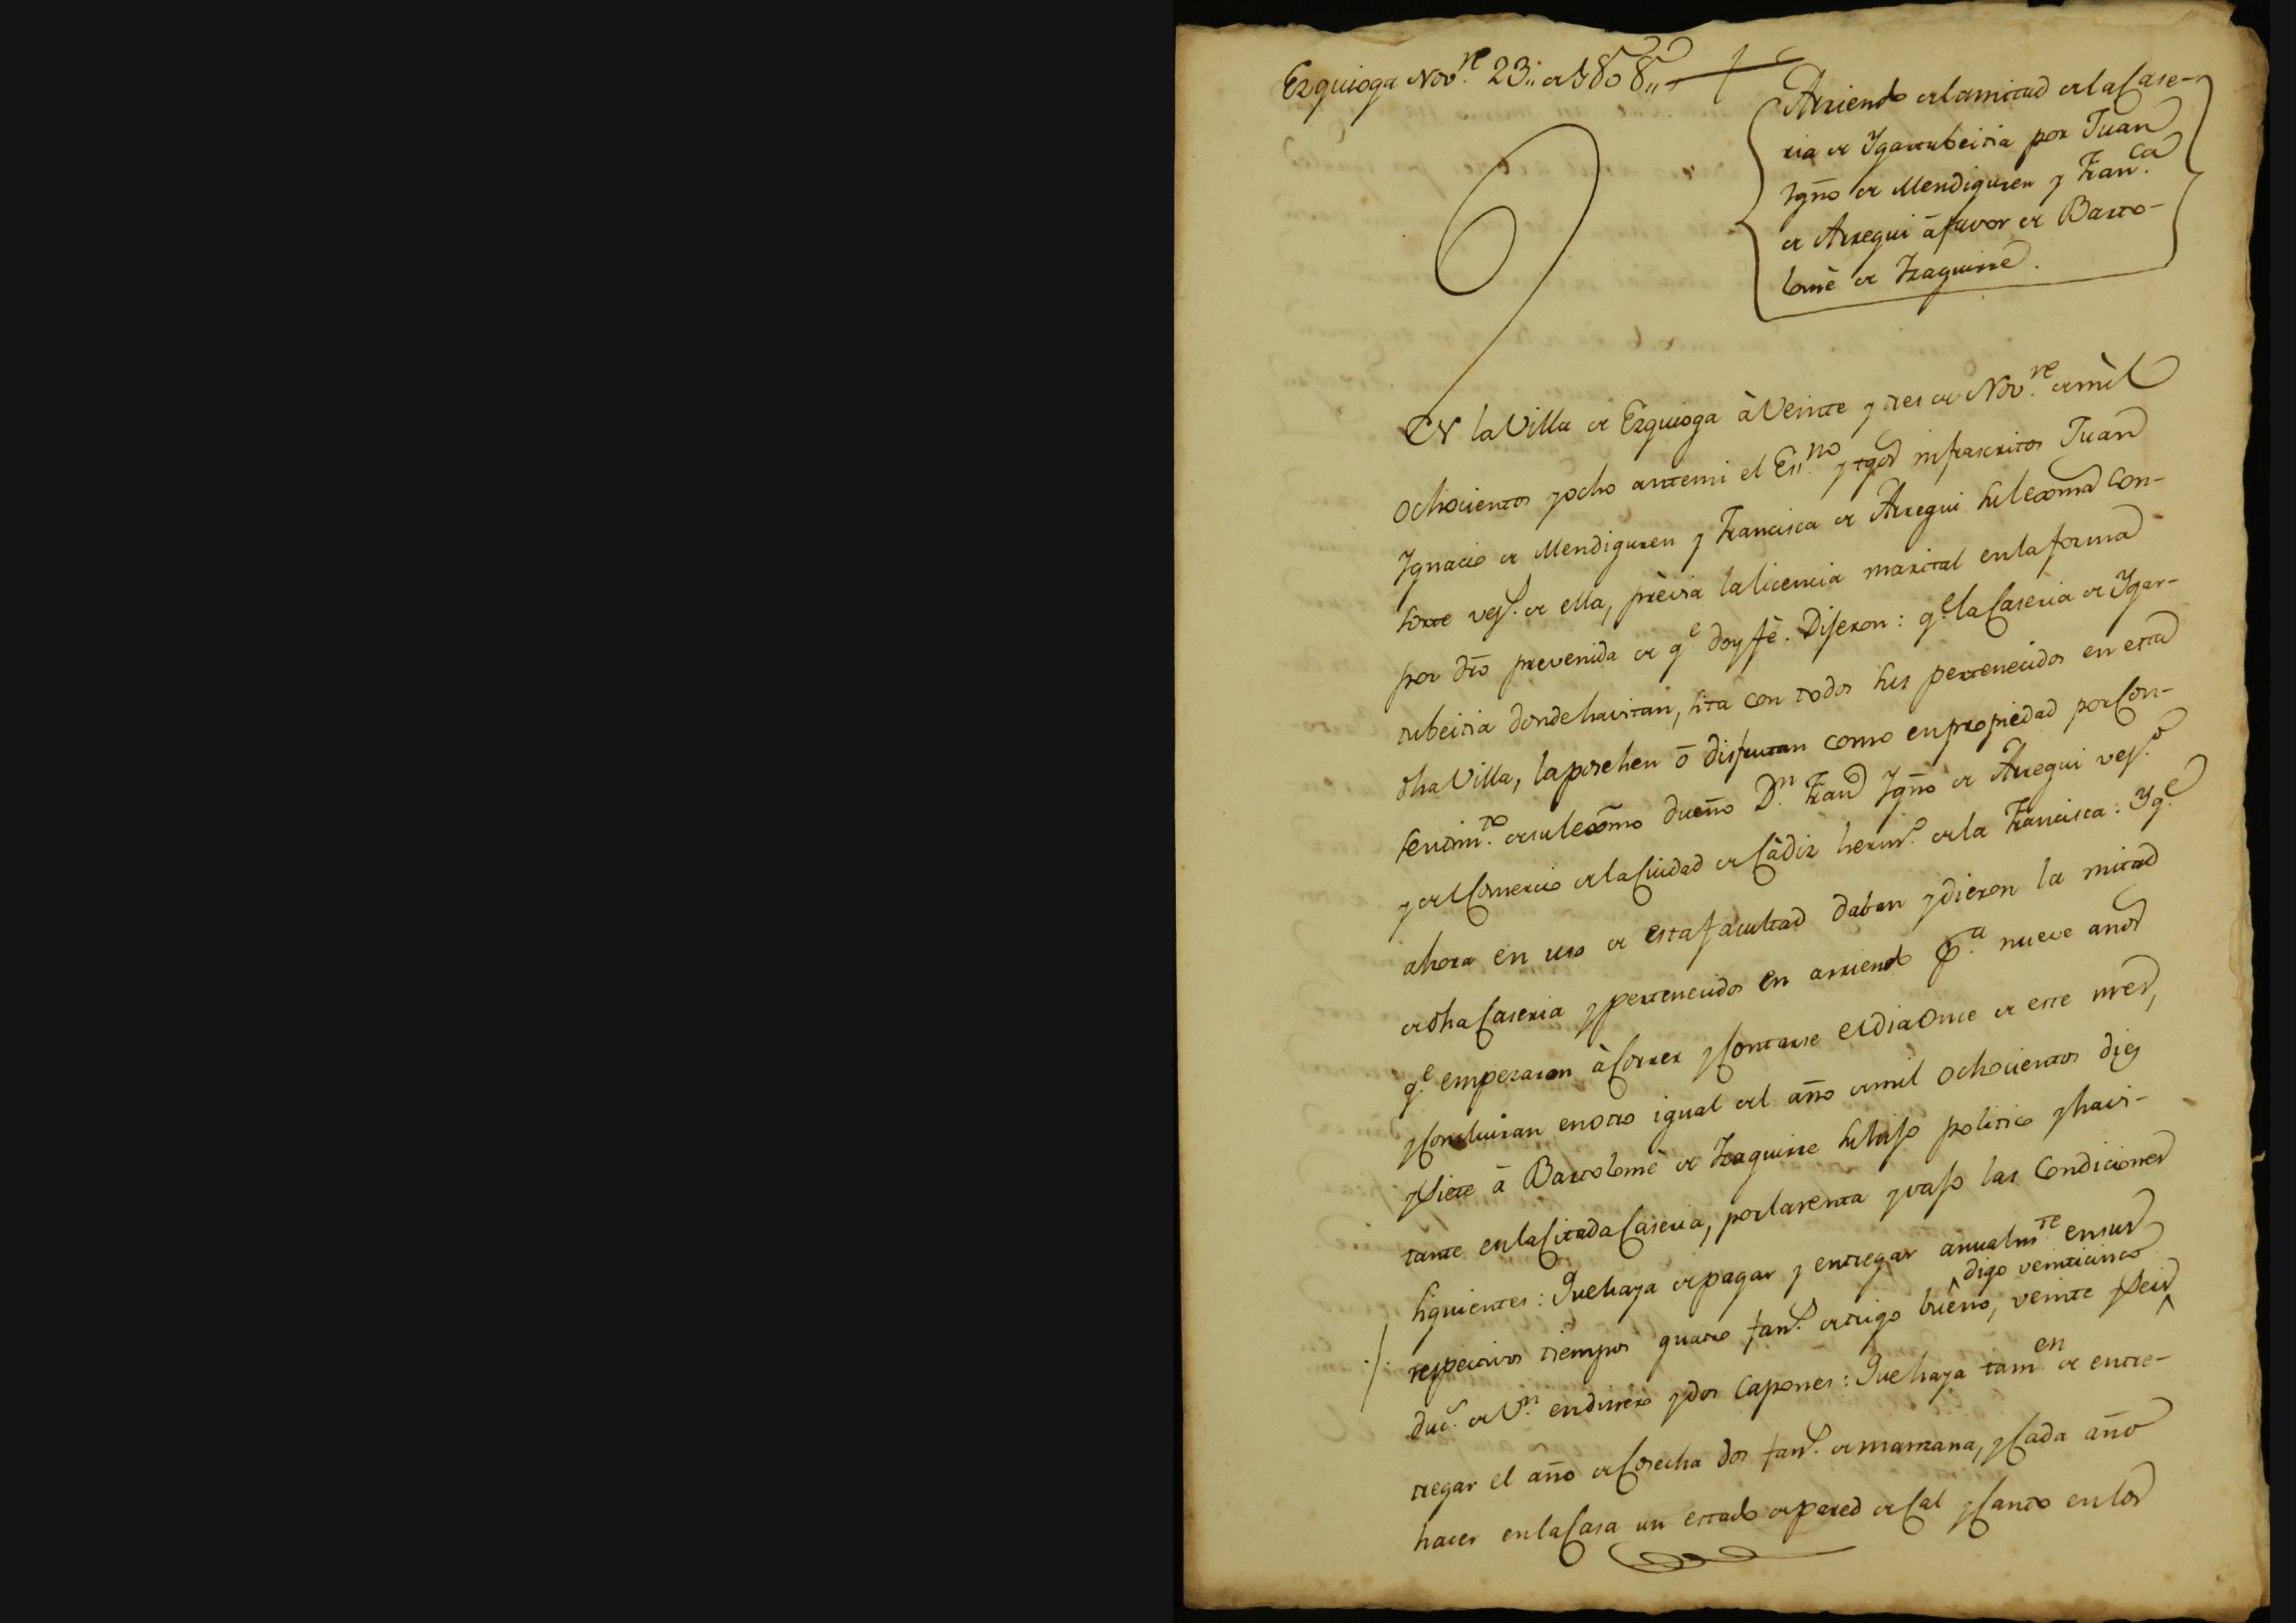 Ezquioga Nov.re 23,, de 1808,,
Arriendo de la mitad de la Case-
ria de Ygartubeitia por Juan
Ign̄o de Mendiguren y Fran.ca
de Arregui á favor de Barto-
lomè de Izaguirre.
EN la Villa de Ezquioga à Veinte y tres de Nov.re de mìl
ochocientos y ocho ante mi el Ess.no y tgos infrascritos Juan
Ygnacio de Mendiguren y Francisca de Arregui su lexma con-
sorte vez.s de ella, prèvia la licencia marital en la forma
por dr̄o prevenida de q.e doy fè. Dijeron: q.e la Caseria de Ygar-
tubeitia donde havitan, sita con todos sus pertenecidos en esta
dha Villa, la posehen ō disfrutan como en propiedad por Con-
sentim.to de su lex̄mo dueño D.n Fran.co Ign̄o de Arregui vez.o
y del Comercio de la Ciudad de Càdiz herm.o de la Francisca: Y q.e
ahora en uso de esta facultad daban y dieron la mitad
de dha Caseria y pertenecidos en arriendo p.a nueve años
q.e empezaron à Correr y Contarse el dia Once de este mes,
y Concluiran en otro igual del año de mil ochocientos diez
y Siete á Bartolomè de Izaguirre su hijo politico y havi-
tante en la Citada Caseria, por la renta y vajo las Condiciones
siguientes: Que haya de pagar y entregar anualm.te en sus
digo veinticinco
respectivos tiempos quatro fan.s de trigo bueno, veinte y Seis
duc.s de V.n en dinero y dos Capones: Que haya tam.en de entre-
tregar el año de Cosecha dos fan.s de manzana, y Cada año
hacer en la Casa un estado de pared de Cal y Canto en los